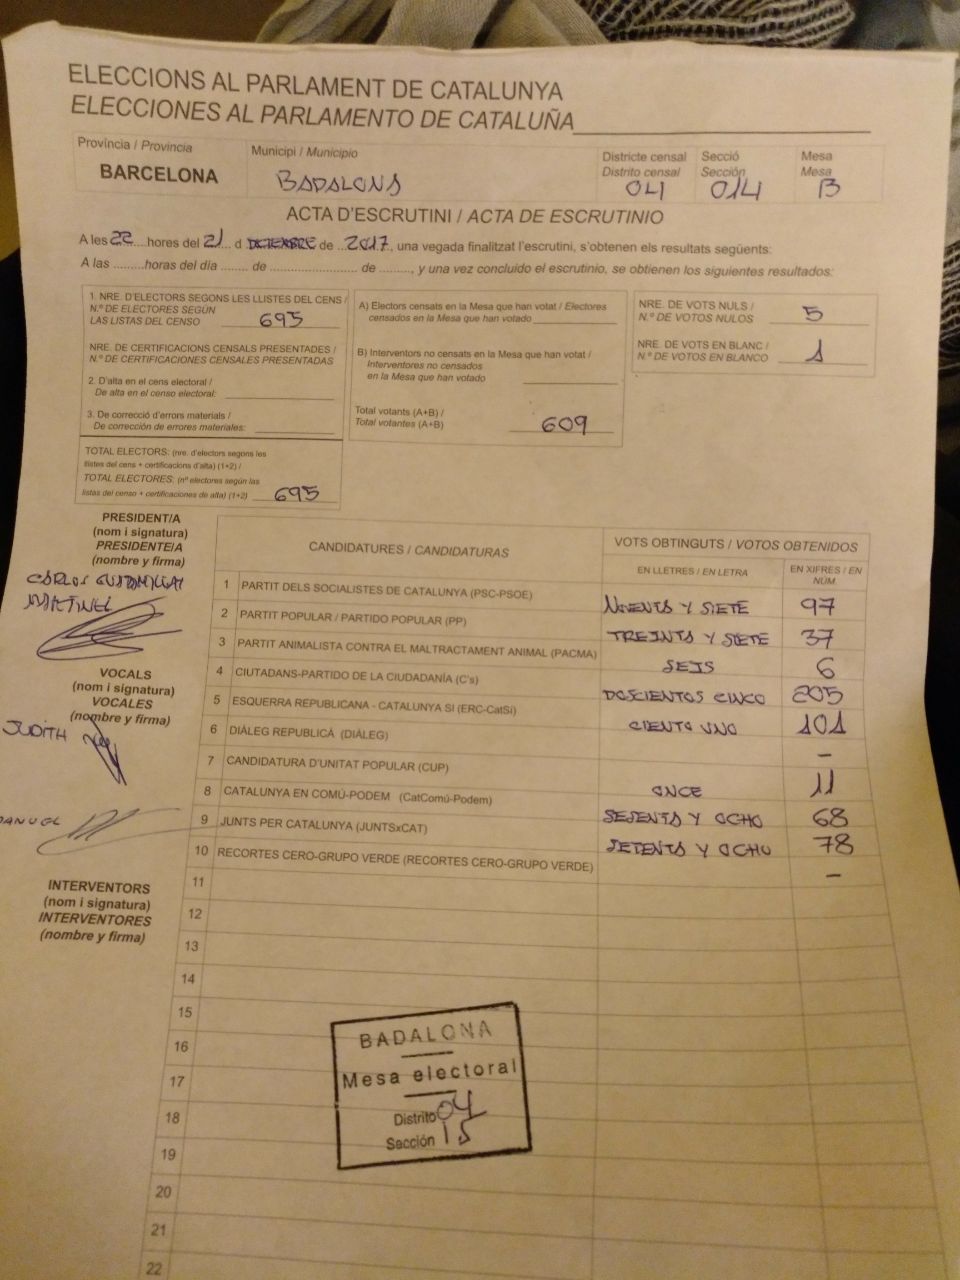 ELECCIONS AL PARLAMENT DE CATALUNYA
ELECCIONES AL PARLAMENTO DE CATALUÑA
Província / Provincia
BARCELONA
Municipi / Municipio
BADALONA
Districte censal
Distrito censal
04
Secció
Sección
014
Mesa
Mesa
B
ACTA D'ESCRUTINI / ACTA DE ESCRUTINIO
A les 22 hores del 21 d DICIEMBRE de 2017, una vegada finalitzat l'escrutini, s'obtenen els resultats següents:
A las .........horas del día ........ de ......................... de ........., y una vez concluido el escrutinio, se obtienen los siguientes resultados:
1. NRE. D'ELECTORS SEGONS LES LLISTES DEL CENS /
N.º DE ELECTORES SEGÚN
LAS LISTAS DEL CENSO 695
NRE. DE CERTIFICACIONS CENSALS PRESENTADES /
N.º DE CERTIFICACIONES CENSALES PRESENTADAS
2. D'alta en el cens electoral /
De alta en el censo electoral:
3. De correcció d'errors materials /
De corrección de errores materiales:
TOTAL ELECTORS: (nre. d'electors segons les
llistes del cens + certificacions d'alta) (1+2) /
TOTAL ELECTORES: (nº electores según las
listas del censo + certificaciones de alta) (1+2) 695
A) Electors censats en la Mesa que han votat / Electores
censados en la Mesa que han votado
B) Interventors no censats en la Mesa que han votat /
Interventores no censados
en la Mesa que han votado
Total votants (A+B) /
Total votantes (A+B) 609
NRE. DE VOTS NULS /
N.º DE VOTOS NULOS 5
NRE. DE VOTS EN BLANC /
N.º DE VOTOS EN BLANCO 1
PRESIDENT/A
(nom i signatura)
PRESIDENTE/A
(nombre y firma)
CARLOS
VOCALS
(nom i signatura)
VOCALES
(nombre y firma)
JUDITH
ANUEL
INTERVENTORS
(nom i signatura)
INTERVENTORES
(nombre y firma)
CANDIDATURES / CANDIDATURAS
VOTS OBTINGUTS / VOTOS OBTENIDOS
EN LLETRES / EN LETRA
EN XIFRES / EN
NÚM.
1 PARTIT DELS SOCIALISTES DE CATALUNYA (PSC-PSOE) NOVENTA Y SIETE 97
2 PARTIT POPULAR / PARTIDO POPULAR (PP) TREINTA Y SIETE 37
3 PARTIT ANIMALISTA CONTRA EL MALTRACTAMENT ANIMAL (PACMA) SEIS 6
4 CIUTADANS-PARTIDO DE LA CIUDADANÍA (C's) DOSCIENTOS CINCO 205
5 ESQUERRA REPUBLICANA - CATALUNYA SÍ (ERC-CatSí) CIENTO UNO 101
6 DIÀLEG REPUBLICÀ (DIÀLEG) –
7 CANDIDATURA D'UNITAT POPULAR (CUP) ONCE 11
8 CATALUNYA EN COMÚ-PODEM (CatComú-Podem) SESENTA Y OCHO 68
9 JUNTS PER CATALUNYA (JUNTSxCAT) SETENTA Y OCHO 78
10 RECORTES CERO-GRUPO VERDE (RECORTES CERO-GRUPO VERDE) –
11
12
13
14
15
16
17
18
19
20
21
22
BADALONA
Mesa electoral
Distrito 04
Sección 15